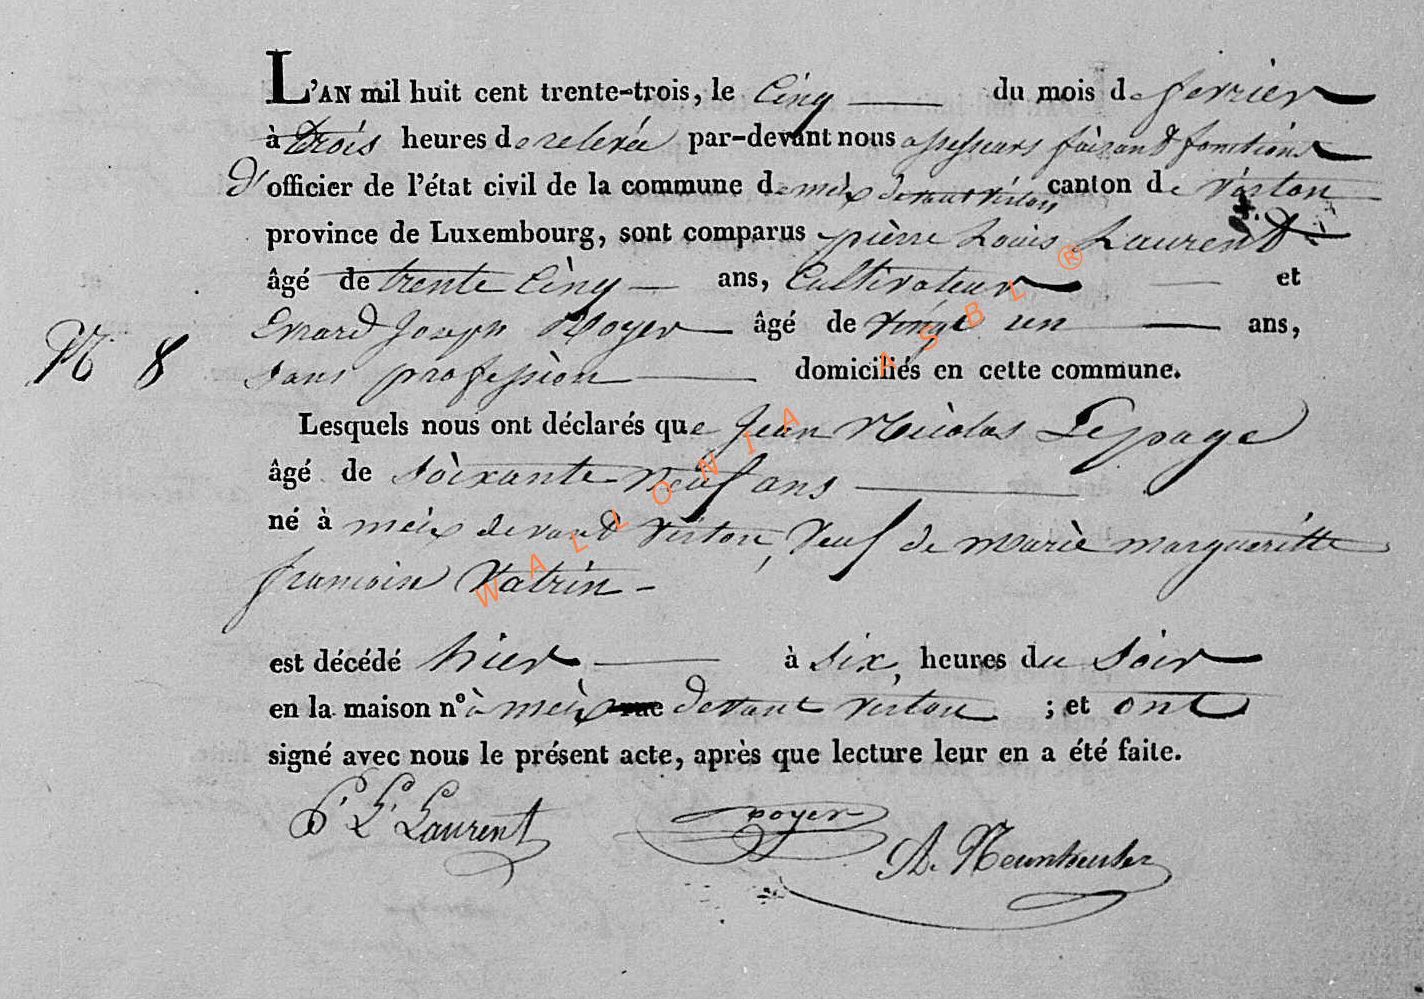 L'AN mil huit cent trente-trois, le Cinq du mois de fevrier
à trois heures de relevée par-devant nous assesseurs faisant fonctions
d'officier de l'état civil de la commune de meix devant virton canton de virton
province de Luxembourg, sont comparus pièrre Louis Laurent
âgé de trente Cinq ans, Cultivateur et
Evrard Joseph âgé de vingt un ans,
N. 8
sans profession domiciliés en cette commune.
Lesquels nous ont déclarés que Jean Nicolas Lepage
âgé de soixante neuf ans
né à meix devant virton, veuf de Marie margueritte
francoise Watrin
est décédé hier à six heures du soir
en la maison nº à meix rue devant virton ; et ont
signé avec nous le présent acte, après que lecture leur en a été faite.
P. L. Laurent
A.
WALLONIA ASBL ®